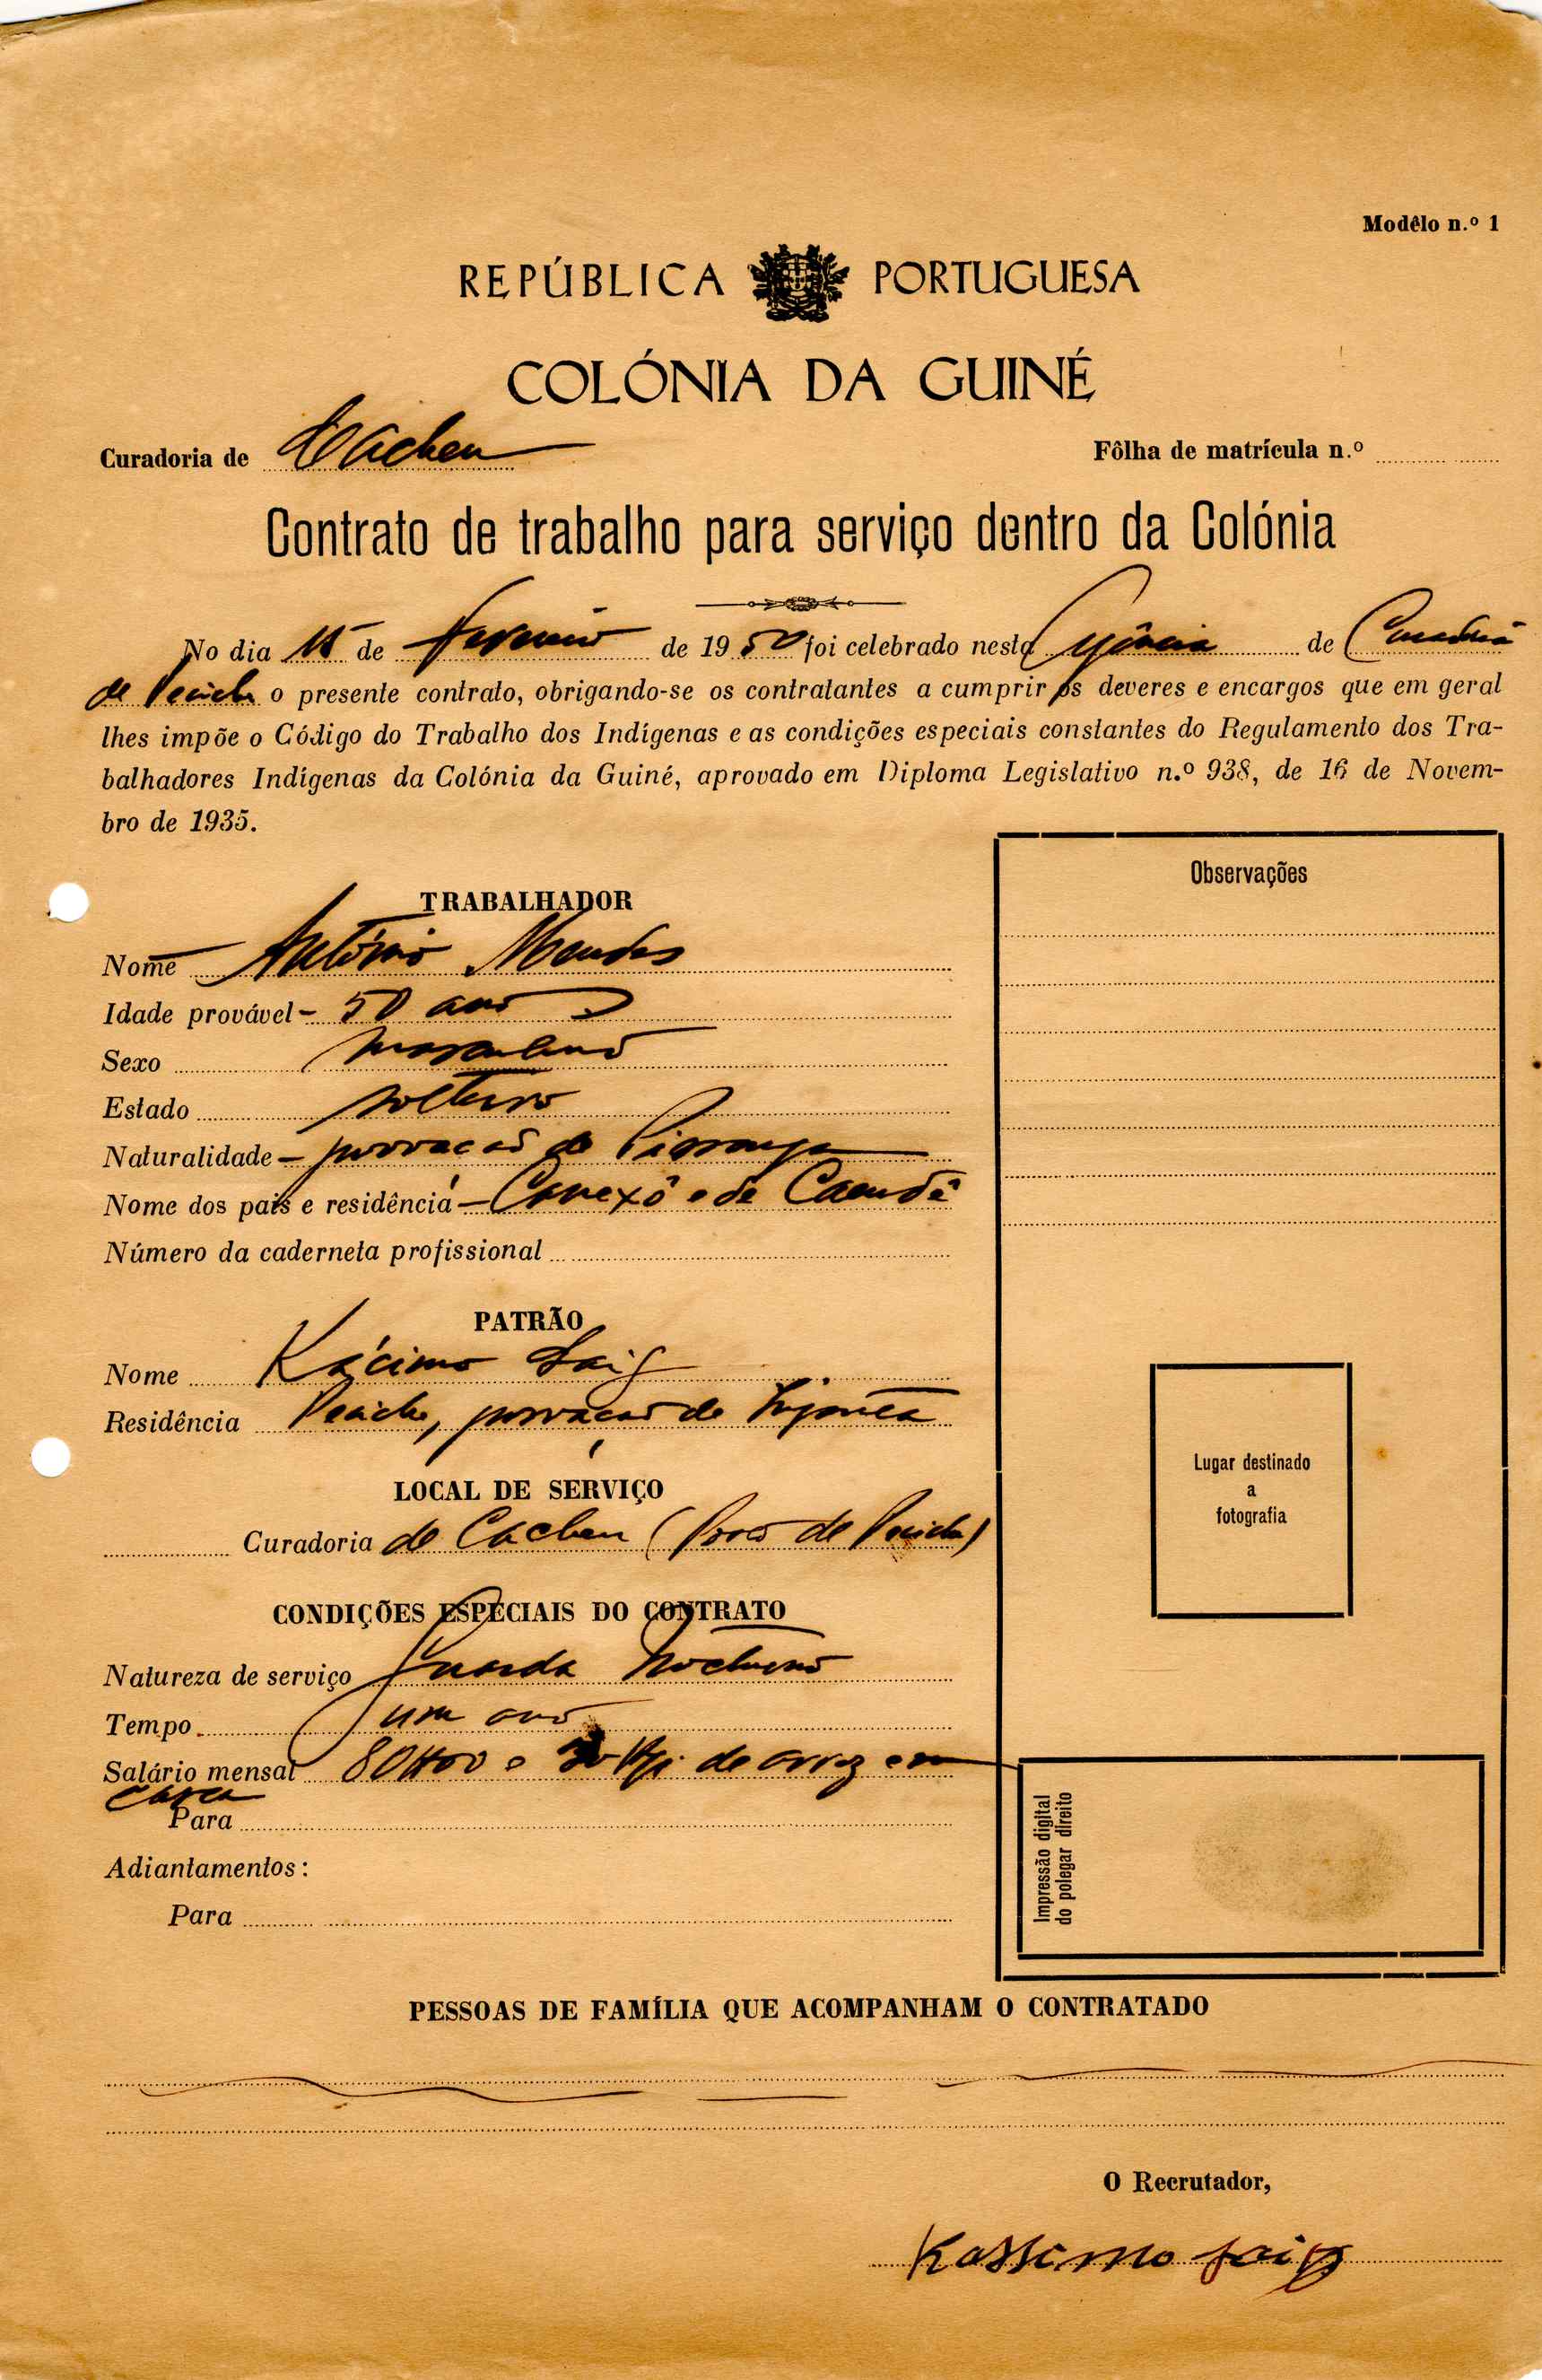 Modêlo n.º 1
REPÚBLICA PORTUGUESA
COLÓNIA DA GUINÉ
Curadoria de Cacheu Fôlha de matrícula n.º
Contrato de trabalho para serviço dentro da Colónia
No dia 15 de Fevereiro de 1950 foi celebrado nesta Agência de Curadoria
de Pecixe o presente contrato, obrigando-se os contratantes a cumprir os deveres e encargos que em geral
lhes impõe o Código do Trabalho dos Indígenas e as condições especiais constantes do Regulamento dos Tra-
balhadores Indígenas da Colónia da Guiné, aprovado em Diploma Legislativo n.º 938, de 16 de Novem-
bro de 1935.
Observações
TRABALHADOR
Nome António Mendes
Idade provável - 50 anos
Sexo masculino
Estado solteiro
Naturalidade - povoação de
Nome dos pais e residência - e de
Número da caderneta profissional
PATRÃO
Nome Kácimo Faiz
Residência Pecixe, povoação de
LOCAL DE SERVIÇO
Curadoria de Cacheu (Posto de Pecixe)
CONDIÇÕES ESPECIAIS DO CONTRATO
Natureza de serviço Guarda Nocturno
Tempo um ano
Salário mensal 80$00 e Kgs de arroz em
casca
Para
Adiantamentos:
Para
Lugar destinado
a
fotografia
Impressão digital
do polegar direito
PESSOAS DE FAMÍLIA QUE ACOMPANHAM O CONTRATADO
O Recrutador,
Kassimo Faiz